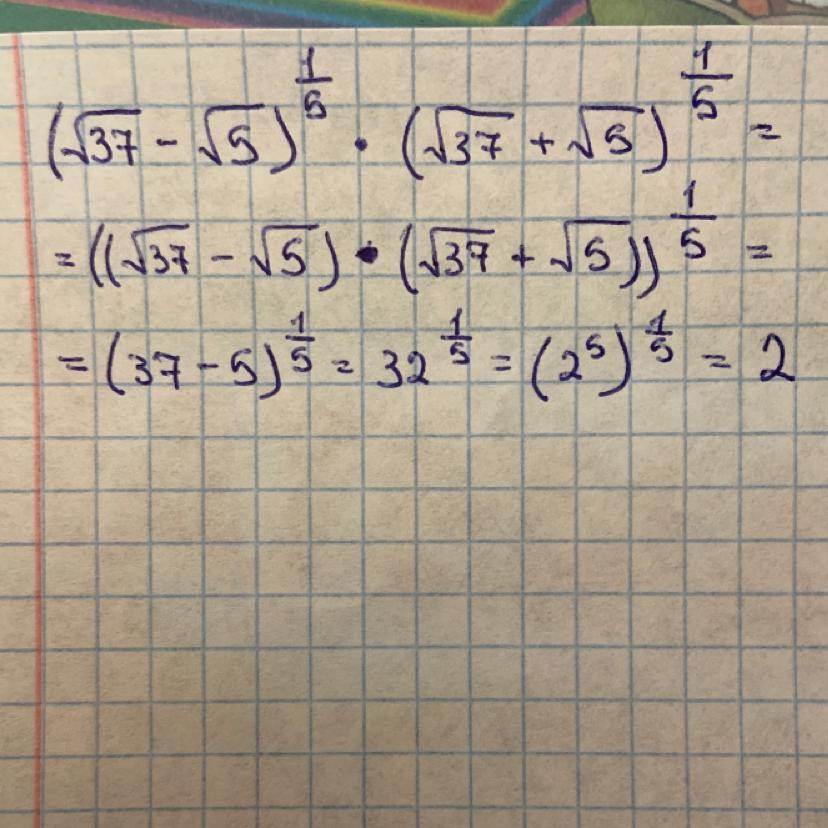 (√37 - √5)^(1/5) · (√37 + √5)^(1/5) =
= ((√37 - √5) · (√37 + √5))^(1/5) =
= (37 - 5)^(1/5) = 32^(1/5) = (2^5)^(1/5) = 2